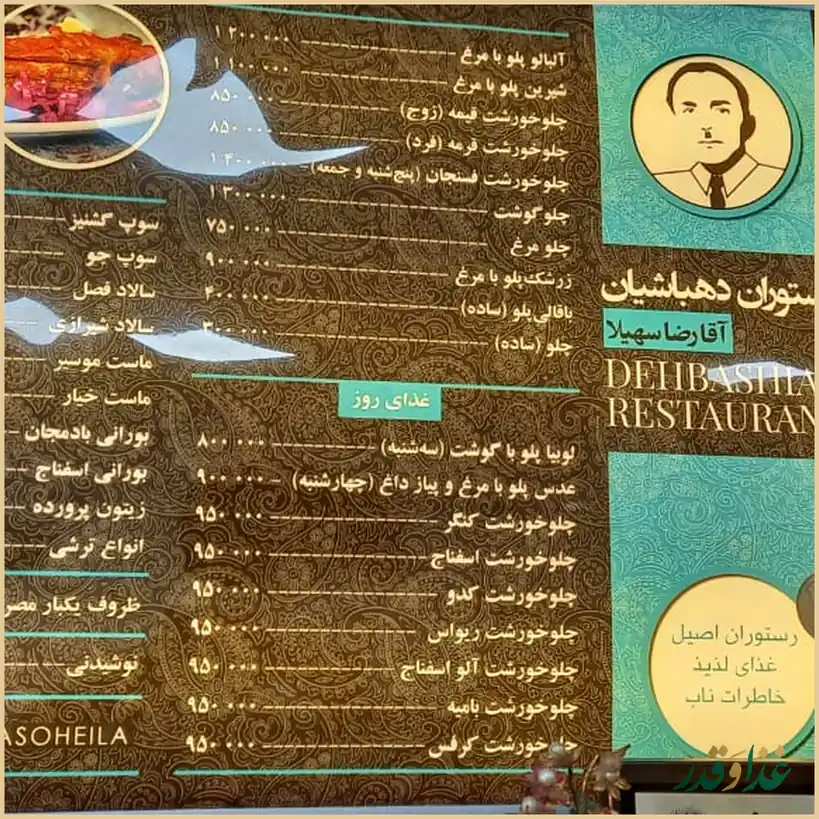 آلبالو پلو با مرغ ۱ ۲۰۰ ۰۰۰
شیرین پلو با مرغ ۱ ۱۰۰ ۰۰۰
چلوخورشت قیمه (زوج) ۸۵۰ ۰۰۰
چلوخورشت قرمه (فرد) ۸۵۰ ۰۰۰
چلوخورشت فسنجان (پنج‌شنبه و جمعه) ۱ ۴۰۰ ۰۰۰
چلوگوشت ۱ ۳۰۰ ۰۰۰
چلو مرغ ۷۵۰ ۰۰۰
زرشک پلو با مرغ ۹۰۰ ۰۰۰
باقالی پلو (ساده) ۴۰۰ ۰۰۰
چلو (ساده) ۳۰۰ ۰۰۰
غذای روز
لوبیا پلو با گوشت (سه‌شنبه) ۸۰۰ ۰۰۰
عدس پلو با مرغ و پیاز داغ (چهارشنبه) ۹۰۰ ۰۰۰
چلوخورشت کنگر ۹۵۰ ۰۰۰
چلوخورشت اسفناج ۹۵۰ ۰۰۰
چلوخورشت کدو ۹۵۰ ۰۰۰
چلوخورشت ریواس ۹۵۰ ۰۰۰
چلوخورشت آلو اسفناج ۹۵۰ ۰۰۰
چلوخورشت بامیه ۹۵۰ ۰۰۰
چلوخورشت کرفس ۹۵۰ ۰۰۰
ستوران دهباشیان
آقا رضا سهیلا
DEHBASHIA
RESTAURAN
رستوران اصیل
غذای لذیذ
خاطرات ناب
سوپ گشنیز
سوپ جو
سالاد فصل
سالاد شیرازی
ماست موسیر
ماست خیار
بورانی بادمجان
بورانی اسفناج
زیتون پرورده
انواع ترشی
ظروف یکبار مصر
نوشیدنی
ASOHEILA
غذا و قدر